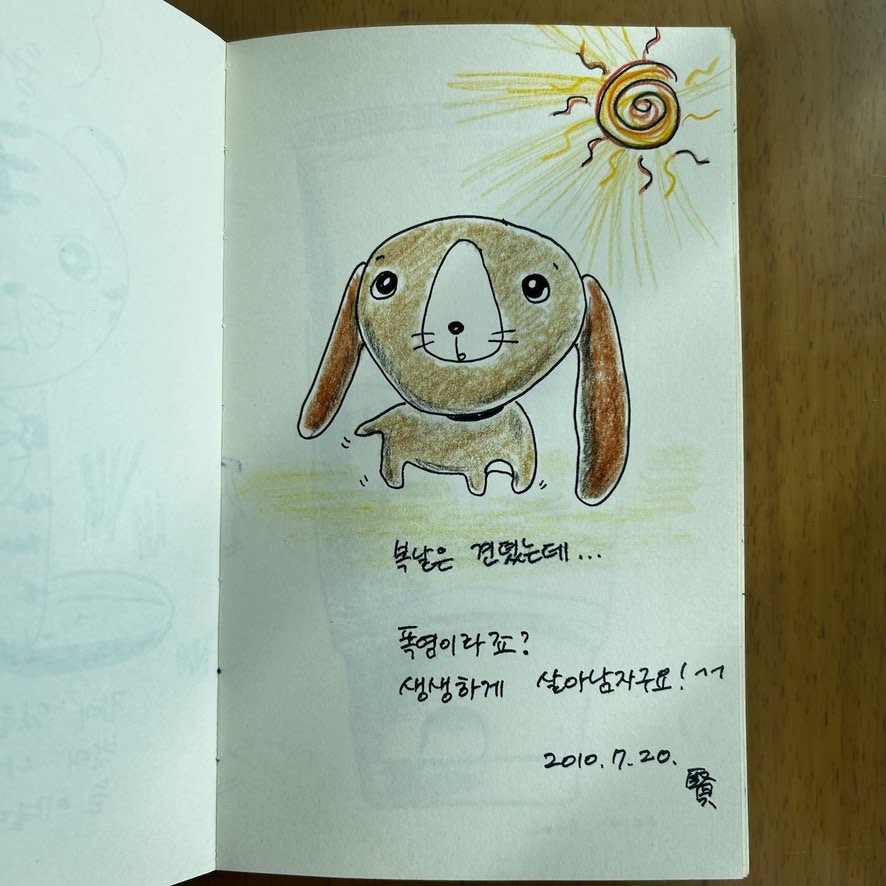 복날은 견뎠는데...
폭염이라죠?
생생하게 살아남자구요! ^^
2010. 7. 20.
賢